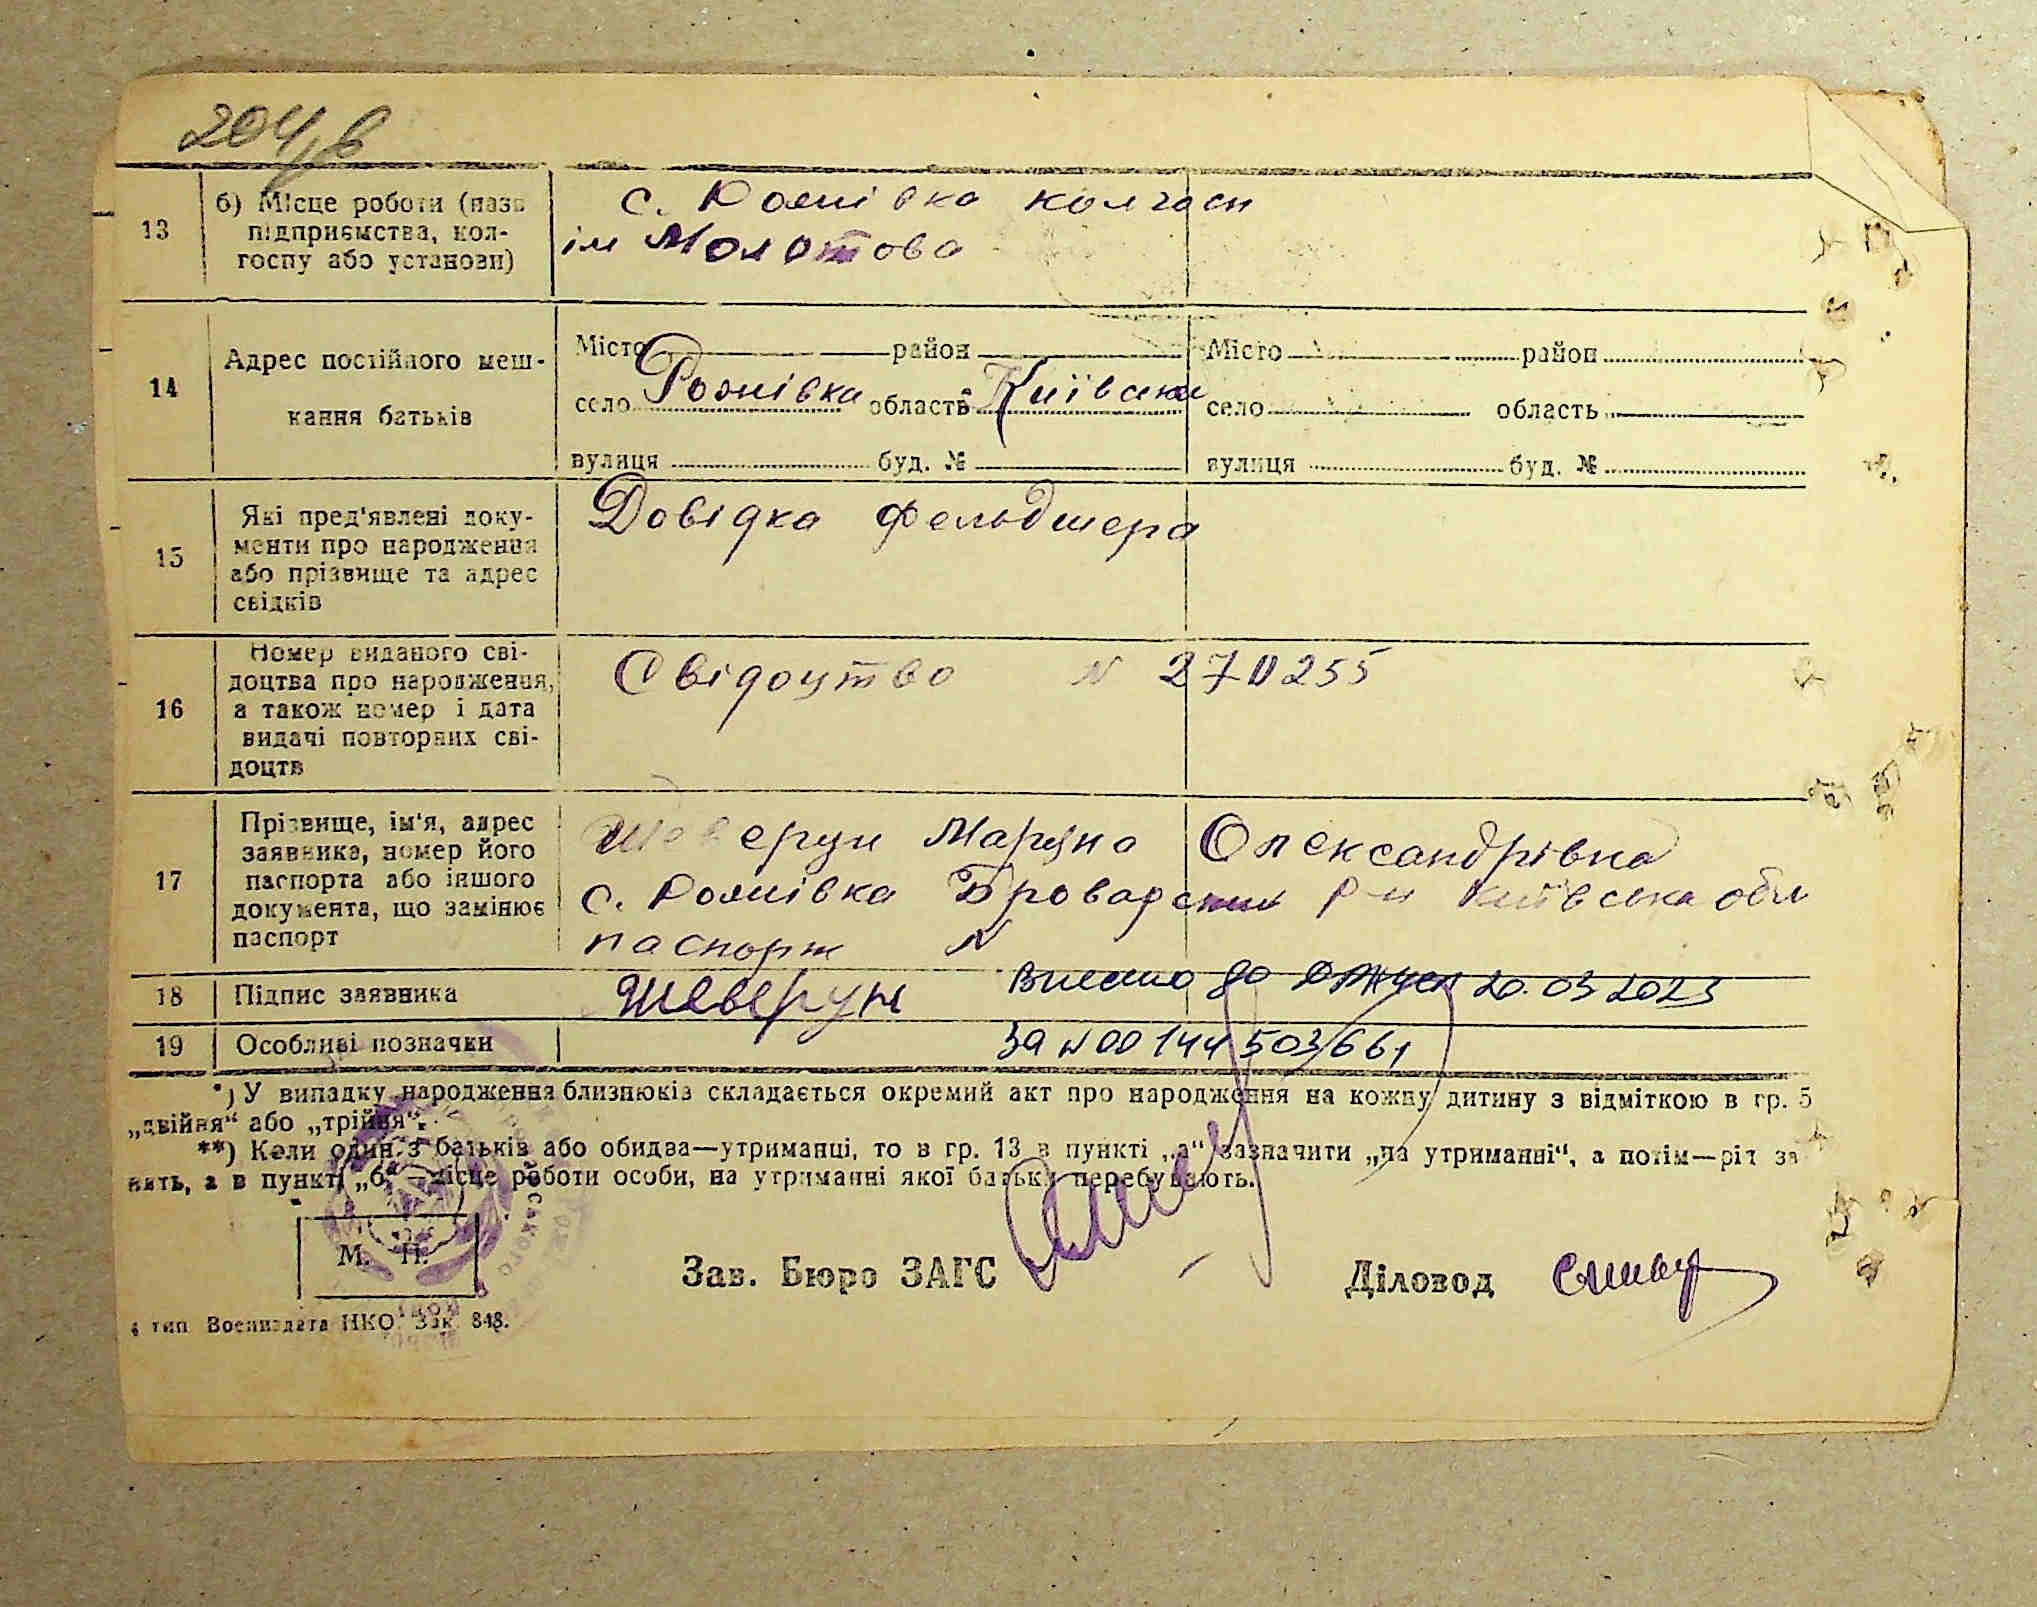 204
13
б) Місце роботи (назв
підприємства, кол-
госпу або установи)
с. Рожівка колгосп
ім Молотова
14
Адрес постійного меш-
кання батьків
Місто район Місто район
село Рожівка область Київська село область
вулиця буд. № вулиця буд. №
15
Які пред'явлені доку-
менти про народження
або прізвище та адрес
свідків
Довідка фельдшера
16
Номер виданого сві-
доцтва про народження,
а також номер і дата
видачі повторних сві-
доцтв
Свідоцтво N 270255
17
Прізвище, ім'я, адрес
заявника, номер його
паспорта або іншого
документа, що замінює
паспорт
Шеверун Марина Олександрівна
с. Рожівка Броварський р-н Київська обл
паспорт N
18 Підпис заявника Шеверун Внесено до ДРАЦСГ 20.03 2023
19 Особливі позначки за N 00144503661
*) У випадку народження близнюків складається окремий акт про народження на кожну дитину з відміткою в гр. 5
„двійня“ або „трійня“.
**) Коли один з батьків або обидва—утриманці, то в гр. 13 в пункті „а“ зазначити „на утриманні“, а потім—рід за
нять, а в пункті „б“ —місце роботи особи, на утриманні якої батьки перебувають.
М. П.
Зав. Бюро ЗАГС Діловод
тип Воениздата НКО. Зак. 848.